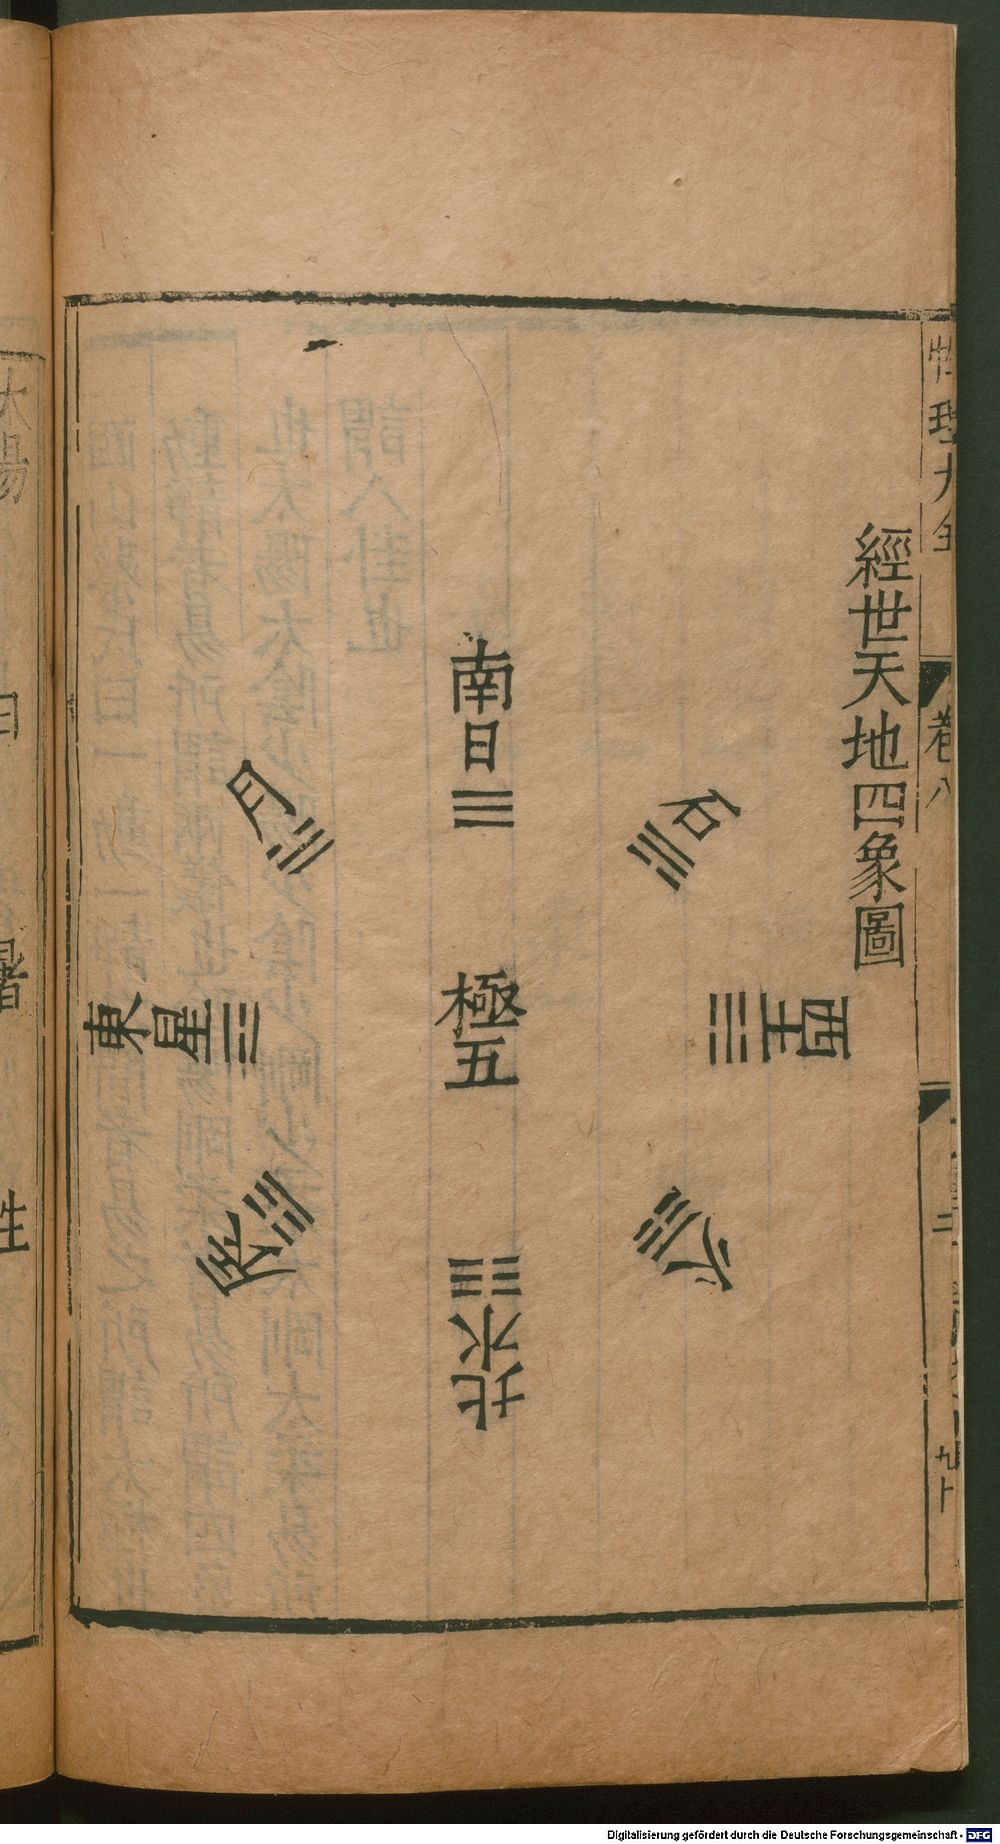 性理大全
卷八
經世天地四象圖
南日☰
石☴
西土☵
火☶
極五
月☱
東星☲
辰☳
北水☷
太陽
日
暑
性
Digitalisierung gefördert durch die Deutsche Forschungsgemeinschaft - DFG